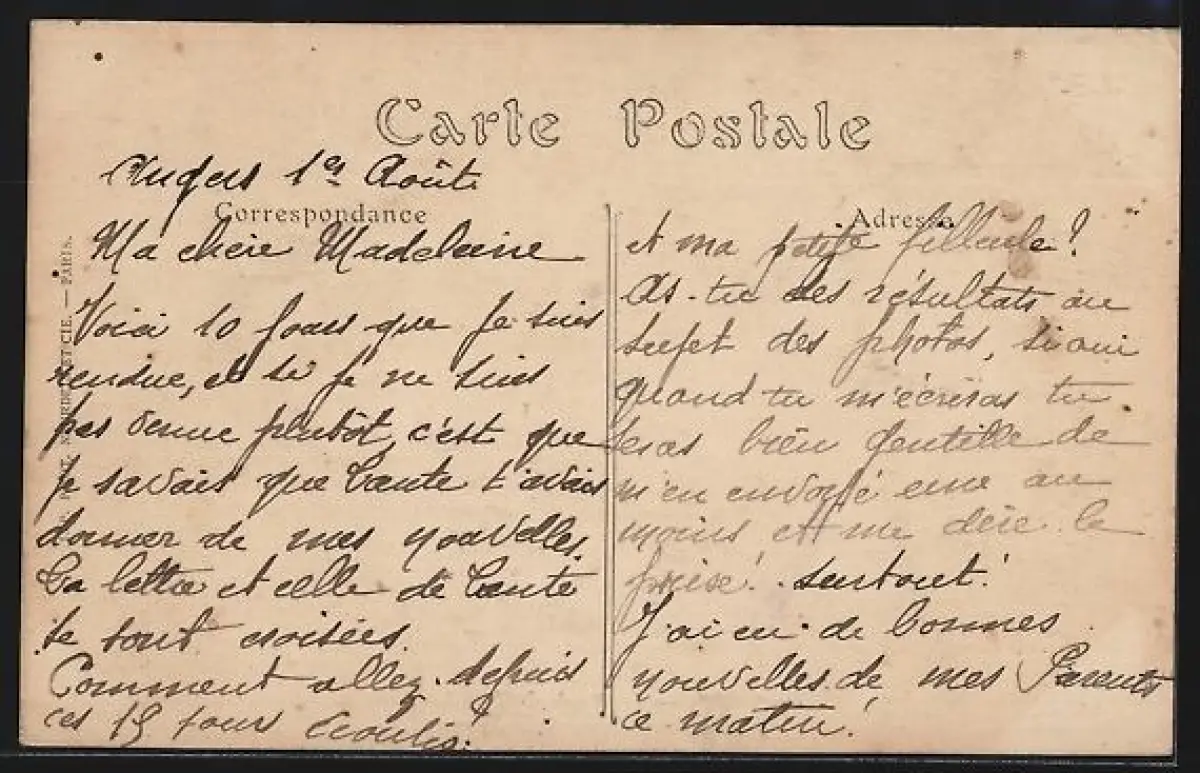 Carte Postale
Angers 1er Août
Correspondance
Ma chère Madeleine
Voici 10 jours que je suis
rendue, et si je ne suis
pas venue plutôt, c'est que
je savais que tante t'avais
donner de mes nouvelles.
Ta lettre et celle de tante
se sont croisées.
Comment allez depuis
ces 15 jours écoulés?
Adresse
et ma petite filleule?
As-tu des résultats au
sujet des photos, si oui
quand tu m'écriras tu
seras bien gentille de
m'en envoyé une au
moins et me dire le
prix! surtout!
J'ai eu de bonnes
nouvelles de mes Parents
ce matin!
ET CIE. — PARIS.